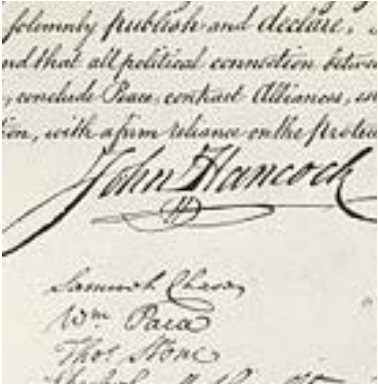 solemnly publish and declare,
nd that all political connection betwee
, conclude Peace, contract Alliances, es
tion, with a firm reliance on the protec
John Hancock
H
Samuel Chase
Wm. Paca
Thos. Stone